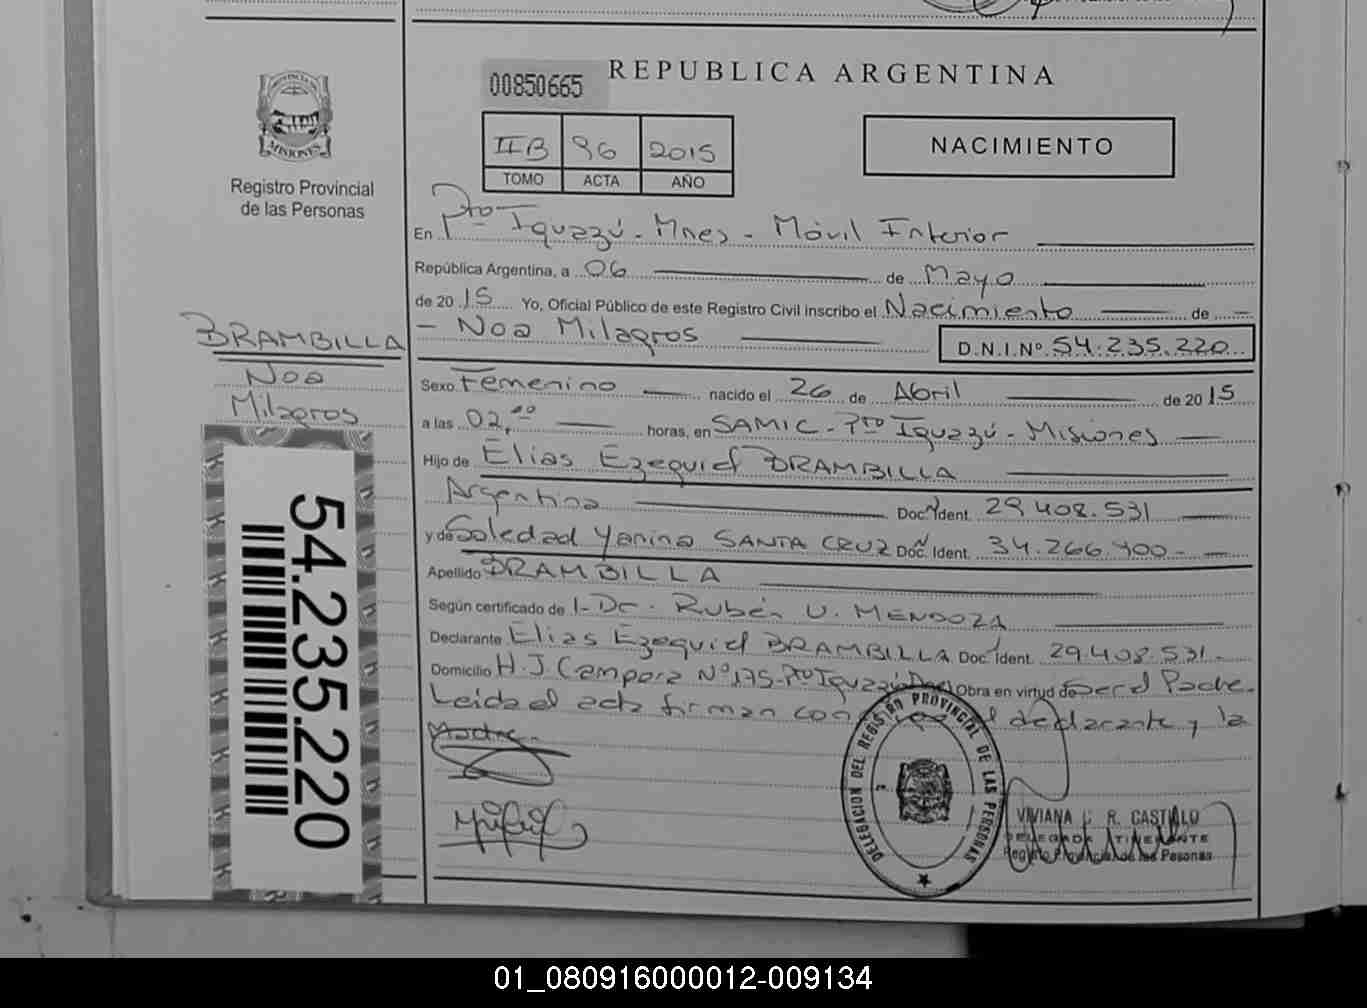 REPUBLICA ARGENTINA
00850665
PROVINCIA DE
MISIONES
Registro Provincial
de las Personas
IIB 96 2015
TOMO ACTA AÑO
NACIMIENTO
En Pto Iguazú - Mnes - Móvil Interior
República Argentina, a 06 de Mayo
de 2015 Yo, Oficial Público de este Registro Civil inscribo el Nacimiento de
- Noa Milagros
D.N.I.Nº 54.235.220
BRAMBILLA
Noa
Milagros
Sexo Femenino nacido el 26 de Abril de 2015
a las 02,00 horas, en SAMIC - Pto Iguazú - Misiones
Hijo de Elias Ezequiel BRAMBILLA
Argentina Doc. Ident. 29.408.531
y de Soledad Yanina SANTA CRUZ Doc. Ident. 34.266.400 -
Apellido BRAMBILLA
Según certificado de 1- Dr. Rubén U. MENDOZA
Declarante Elias Ezequiel BRAMBILLA Doc. Ident. 29.408.531 -
Domicilio H. J. Campora Nº 175 - Pto Iguazú Obra en virtud de Ser el Padre.
Leida el acta firman el declarante y la
Madre.
54.235.220
DELEGACION DEL REGISTRO PROVINCIAL DE LAS PERSONAS
VIVIANA R. CASTILLO
DELEGADA ITINERANTE
Registro Provincial de las Pesonas
01_080916000012-009134